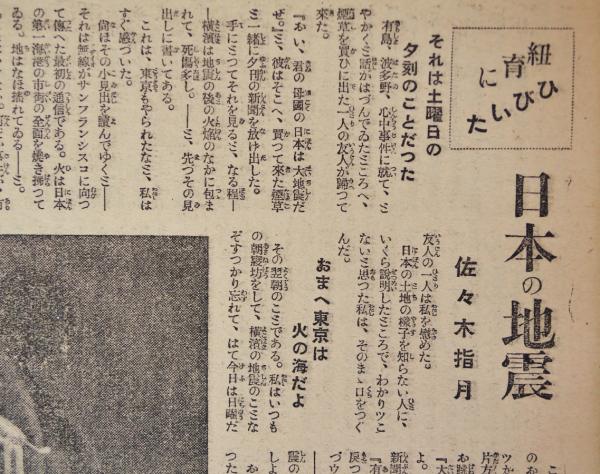 紐育にひゞいた
日本の地震
佐々木指月
それは土曜日の
夕刻のことだつた
有島、波多野、心中事件に就て、ミ
やかくミ話がはづんでゐたミころへ、
煙草を買ひに出た一人の友人が歸つて
來た。
『おい、君の母國の日本は大地震だ
ぜ。』ミ、彼はそこへ、買つて來た煙草
ミ一緒に夕刊の新聞を放け出した。
手にミつてそれを見るミ、なる程―
―横濱は地震の後の火焔のなかに包ま
れて、死傷多し。――ミ、先づその見
出しに書いてある。
これは、東京もやられたなミ、私は
すぐ感づいた。
尙ほその小見出を讀んでゆくミ―
それは無線がサンフランシスコに向つ
て傳へた最初の通信である。火は日本
の第一海港の市街の全面を燒き拂つて
ゐる。地はなほ搖れてゐる――ミ。
友人の一人は私を慰めた。
日本の土地の樣子を知らない人に、
いくら說明したミころで、わかりツこ
ないミ思つた私は、そのまゝ口をつぐ
んだ。
おまへ東京は
火の海だよ
その翌朝のこミである。私はいつも
の朝寢坊をして、橫濱の地震のこミな
ぞすつかり忘れて、はて今日は日曜だ